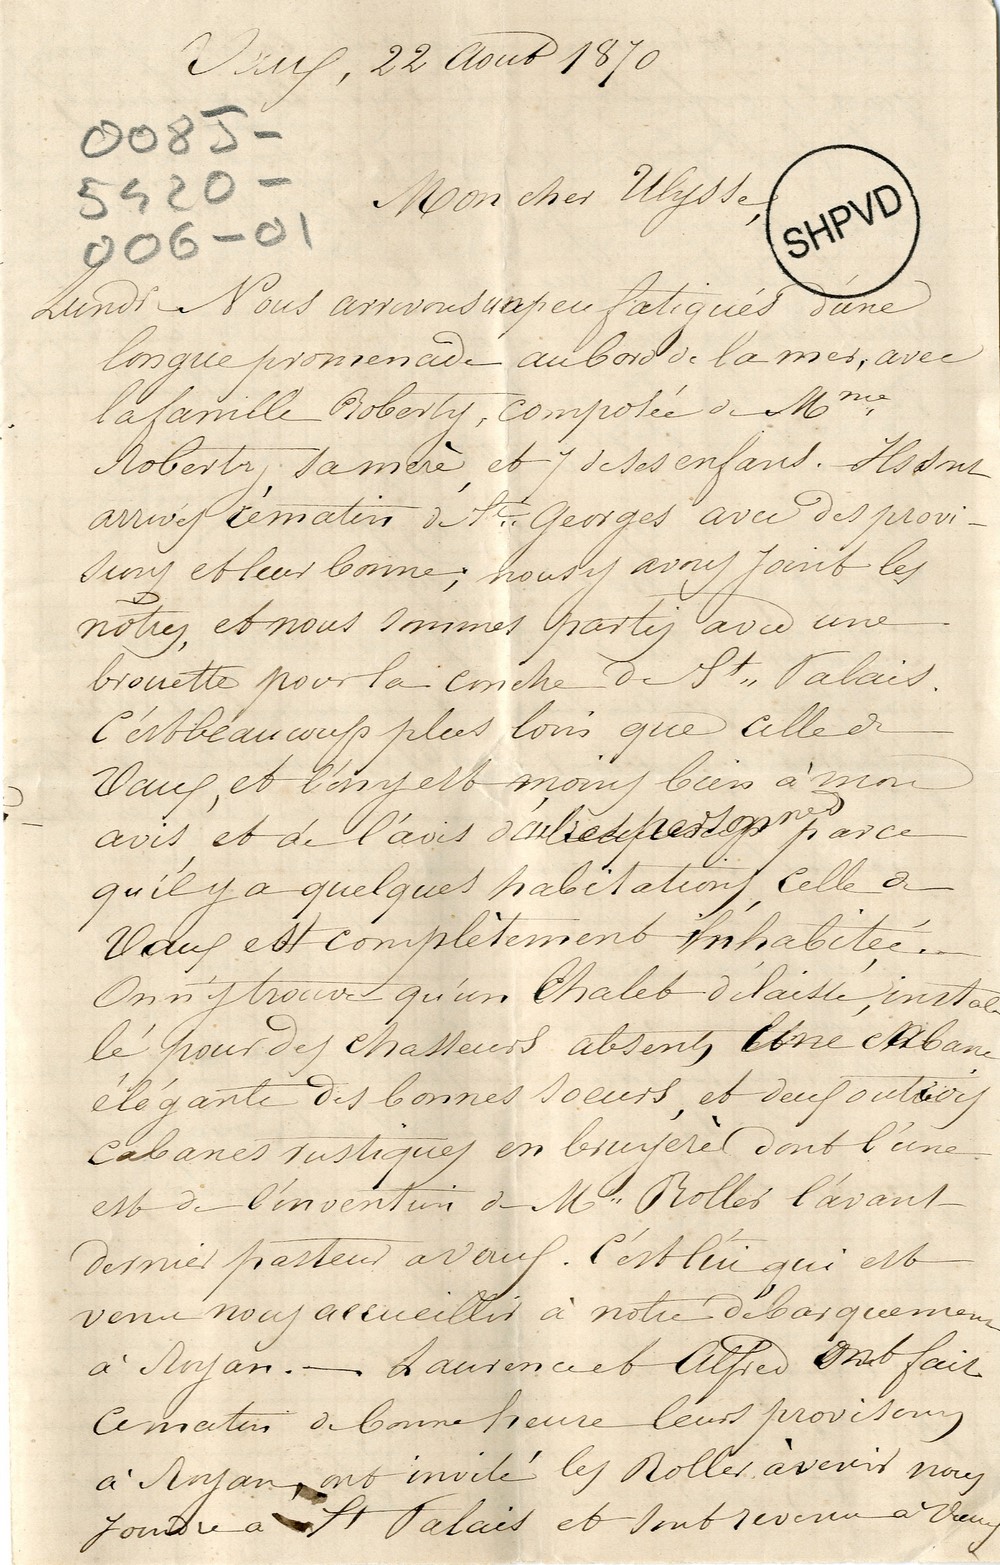 Vaux, 22 Aout 1870
0085-
5420-
006-01
Mon cher Ulysse,
SHPVD
Lundi Nous arrivons un peu fatigués d'une
longue promenade au bord de la mer, avec
la famille Roberty, composée de Mme
Roberty, sa mère, et 7 de ses enfans. Ils sont
arrivés ce matin de St. Georges avec des provi-
sions et leur bonne; nous y avons joint les
nôtres, et nous sommes partis avec une
brouette pour la conche de St. Palais.
C'est beaucoup plus loin que celle de
Vaux, et l'on y est moins bien à mon
avis et de l'avis d'autres personnes parce
qu'il y a quelques habitations, celle de
Vaux est complètement inhabitée. -
On n'y trouve qu'un Chalet délaissé, instal-
lé pour des chasseurs absents, Une cabane
élégante des bonnes soeurs, et deux ou trois
cabanes rustiques en bruyère dont l'une
est de l'invention de Mr. Roller l'avant-
dernier pasteur a vaux. C'est lui qui est
venu nous accueillir à notre débarquement
à Royan. - Laurence et Alfred ont fait
ce matin de bonne heure leurs provisions
à Royan, ont invité les Roller à venir nous
joindre a St Palais et sont revenu à Vaux